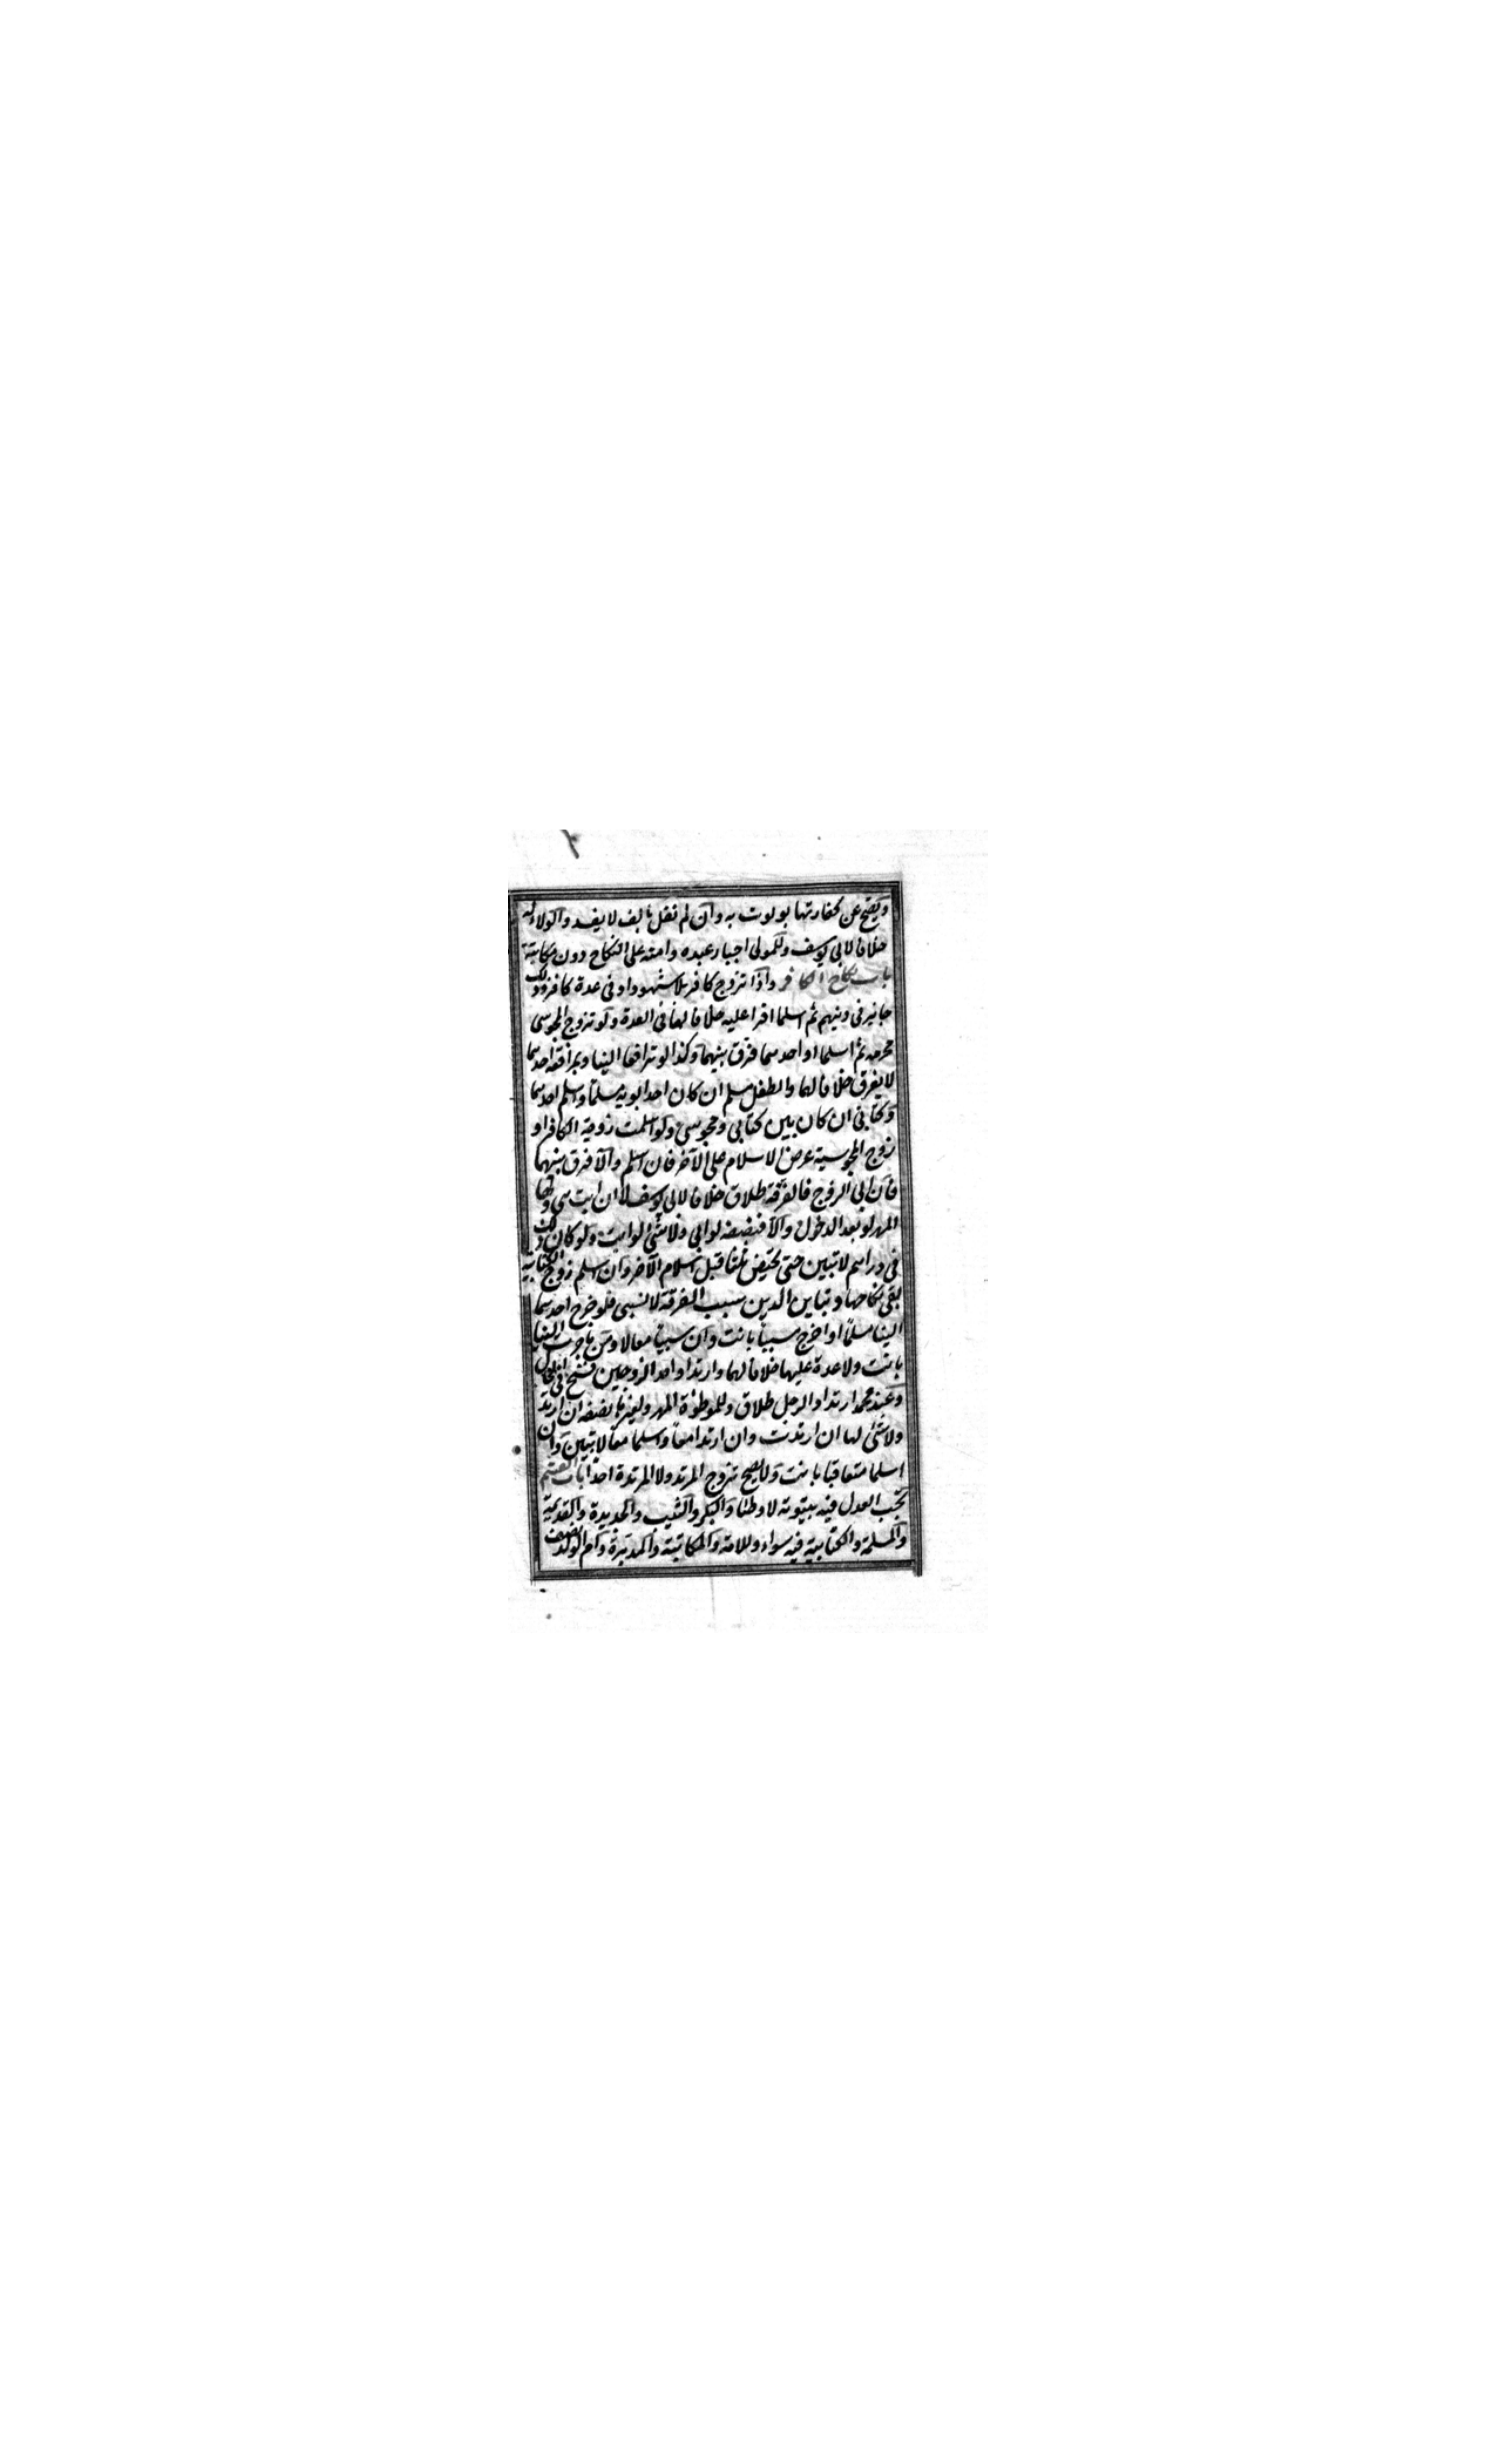 ويصح عن كفارتها لو نوت به وان لم تقل بالف لا يفسد والولاء له
خلافا لابي يوسف وللمولى اجبار عبده وامته على النكاح دون مكاتبه
باب نكاح الكافر واذا تزوج كافر بلا شهود او في عدة كافر وذلك
جائز في دينهم ثم اسلما اقرا عليه خلافا لهما في العدة ولو تزوج المجوسي
محرمه ثم اسلما او احدهما فرق بينهما وكذا لو ترافعا الينا وبمرافعة احدهما
لا يفرق خلافا لهما والطفل مسلم ان كان احد ابويه مسلما او اسلم احدهما
وكتابي ان كان بين كتابي ومجوسي ولو اسلمت زوجة الكافر او
زوج المجوسية عرض الاسلام على الآخر فان اسلم والا فرق بينهما
فان ابى الزوج فالفرقة طلاق خلافا لابي يوسف لا ان ابت هي ولها
المهر لو بعد الدخول والا فنصفه لو ابى ولا شئ لو ابت ولو كان ذلك
في دارهم لا تبين حتى تحيض ثلثا قبل اسلام الآخر وان اسلم زوج الكتابية
بقي نكاحها وتباين الدارين سبب الفرقة لا السبي فلو خرج احدهما
الينا مسلما او اخرج سبيا بانت وان سبيا معا لا ومن هاجرت الينا
بانت ولا عدة عليها خلافا لهما وارتداد احد الزوجين فسخ في الحال
وعند محمد ارتداد الرجل طلاق وللموطوءة المهر ولغيرها نصفه ان ارتد
ولا شئ لها ان ارتدت وان ارتدا معا واسلما معا لا تبين وان
اسلما متعاقبا بانت ولا يصح تزوج المرتد ولا المرتدة احدا باب القسم
يجب العدل فيه بيتوتة لا وطئا والبكر والثيب والجديدة والقديمة
والمسلمة والكتابية فيه سواء وللامة والمكاتبة والمدبرة وام الولد نصف